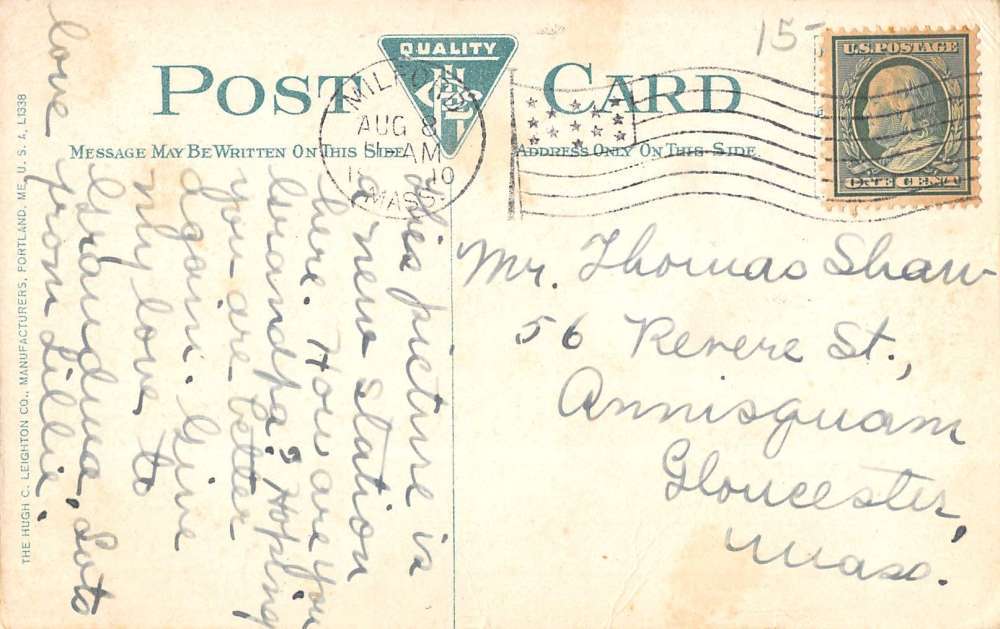 15-
U.S. POSTAGE
ONE CENT
QUALITY
POST CARD
MESSAGE MAY BE WRITTEN ON THIS SIDE
ADDRESS ONLY ON THIS SIDE
MILFORD
AUG 8
AM
10
MASS.
This picture is
a new station
here. How are you
Grandpa? Hoping
you are better
again. Give
my love to
Grandma, Lots
love from Lillie.
Mr. Thomas Shaw
56 Revere St.,
Annisquam
Gloucester,
Mass.
THE HUGH C. LEIGHTON CO., MANUFACTURERS, PORTLAND, ME., U. S. A. L1338